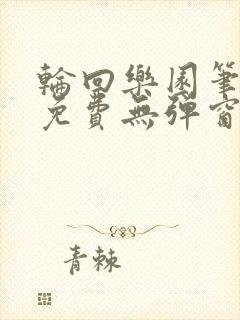 輪回樂園筆
免費無彈窗
青棘